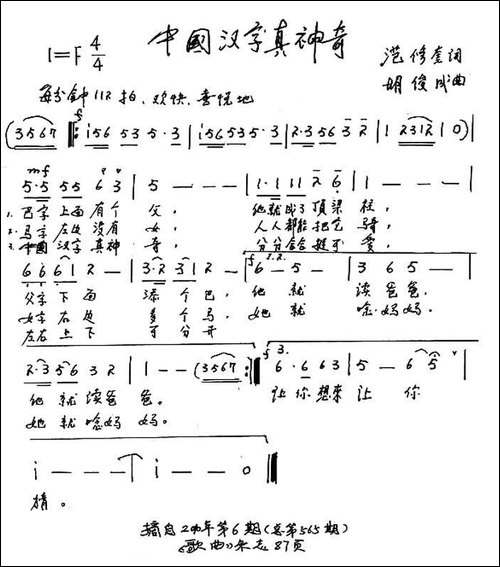 中國汉字真神奇
1=F 4/4
范修奎词
胡俊成曲
每分钟112拍、欢快、喜悦地
f
(3567 ‖: i56 53 5·3 | i56 53 5·3 | 2·3 56 3 2 | 1 2312 1 0) |
mf
5·5 55 6 3 | 5 — — — | 1·1 11 2 6 | 1 — — — |
1. 巴字上面有个父, 他就成了顶梁柱,
2. 马字左边没有女, 人人都能把它骑,
3. 中國汉字真神奇, 分分合合挺可爱,
6 6 6 1 2 — | 3·2 3 1 2 — | f 1.2. 6 — 5 — | 3 6 5 — |
父字下面添个巴, 他就读爸爸,
女字右边多个马, 她就唸妈妈,
左右上下可分开
2·3 5 6 3 2 | 1 — — (3567 :‖ f 3. 6·6 6 3 | 5 — 6 5 |
他就读爸爸。 让你想来让你
她就唸妈妈。
i — — — | i — — 0 ‖
猜。
摘自2011年第6期(总第565期)
《歌曲》杂志87页